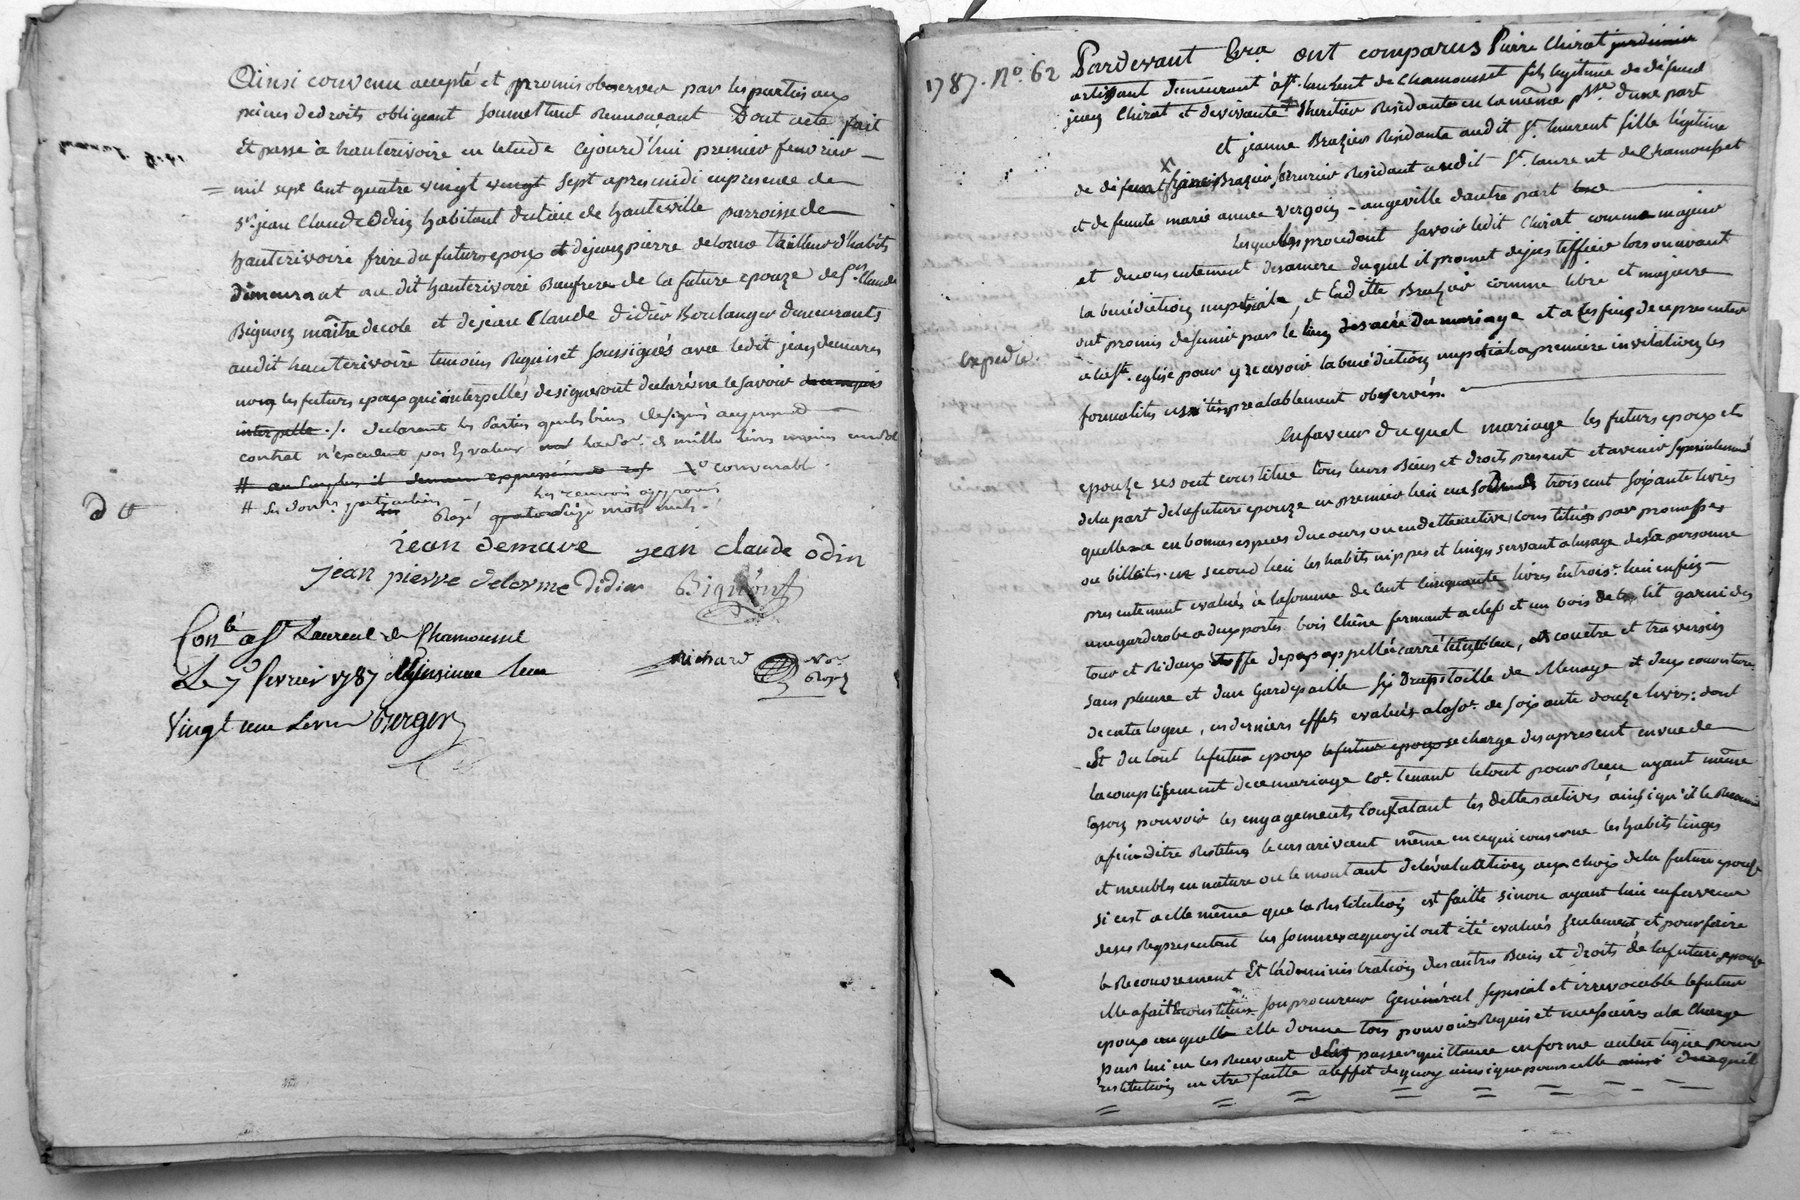 Ainsi convenu accepté et promis observer par les parties aux
peines de droits obligeant soumettant Renonceant Dont acte fait
Et passé à hauterivoire en letude cejourd'hui premier fevrier
mil sept cent quatre vingt vingt sept apres midi en presence de
Sr. jean Claude Odin habitant du lieu de hauteville parroisse de
hauterivoire frere du futur epoux et de jean pierre delorme tailleur d'habits
demeurant au dit hauterivoire Beaufrere de la future epouze de Claude
Bignon maître decole et de jean Claude didier Boulanger demeurants
audit hauterivoire temoins Requis et soussignés avec ledit jean demare
non les futurs epoux qui interpellés de signer ont declaré ne le savoir
interpelle ./. declarent les Parties que les biens designés au present
contrat n'excedent pas la valeur de mille livres
convenable.
les renvois approuvés
Rayé seize mots nuls.
jean demare jean claude odin
jean pierre delorme didier Bignon
Con.lé a St. Laurent de Chamousset
Le 7 fevrier 1787 Insinué
Vingt une Berger
Richard No.re
Royal
1787. No. 62
Expedié.
Pardevant ont comparus Pierre Chirat
artisant demeurant à St. laurent de Chamousset fils legitime de defunt
jean Chirat et de vivante Residante en la même psse. d'une part
et jeanne Brazier Residante audit St. laurent fille legitime
de defunt Brazier serrurier Residant audit St. laurent de Chamousset
et de defunte marie annee d'autre part
lesquels procedant savoir ledit Chirat comme majeur
et du consentement de sa mere duquel il promet de justiffier lors ou avant
la benediction nuptiale, et Ladite Brazier comme libre et majeure
ont promis de s'unir par le lien du sacré Du mariage et a ces fins de se presenter
a la Ste. eglise pour y recevoir la benediction nuptiale a premiere invitation les
formalités usitées prealablement observés.
En faveur du quel mariage les futurs epoux et
epouze se sont constitué tous leurs Biens et droits present et avenir specialement
de la part de la future epouze en premier lieu une somme de trois cent soixante livres
quelle a en bonnes especes du cours ou en dette active constitués par promesses
ou billets. en second lieu les habits nippes et linges servant a lusage de sa personne
presentement evalués à la somme de Cent Cinquante livres en trois.e lieu enfin
une garderobe a deux portes bois Chêne fermant a clef et un bois de lit garni de
tour et Ridaux etoffe de pays appellé carré bleu, couetre et traversin
sans plume et d'un Gardepaille six Draps toille de Menage et deux couvertures
de catalogne, ces derniers effets evalués a la so.e de soixante douze livres: dont
Et du tout le futur epoux le futur epoux se charge des apresent en vue de
lacomplissement de ce mariage tenant le tout pour Reçu ayant même
en son pouvoir les engagements constatant les dettes actives ainsi qu'il le Reconnoit
afin d'être Restitués le cas arrivant même en ce qui concerne les habits linges
et meubles en nature ou le montant de lévaluation au choix de la future epouze
si c'est a elle même que la Restitution est faitte sinon ayant lieu en faveur
de ses Representant les sommes a quoy il ont été evalués seulement et pour faire
le Recouvrement Et ladministration des autres Biens et droits de la future epouze
elle a fait constitué son procureur Général special et irrevocable le futur
epoux auquel elle donne tous pouvoirs Requis et necessaires a la Charge
par lui en les Recevant den passer quittance en forme autentique pour
restitution en etre faitte a leffet de quoy ainsi que pour celle ainsi